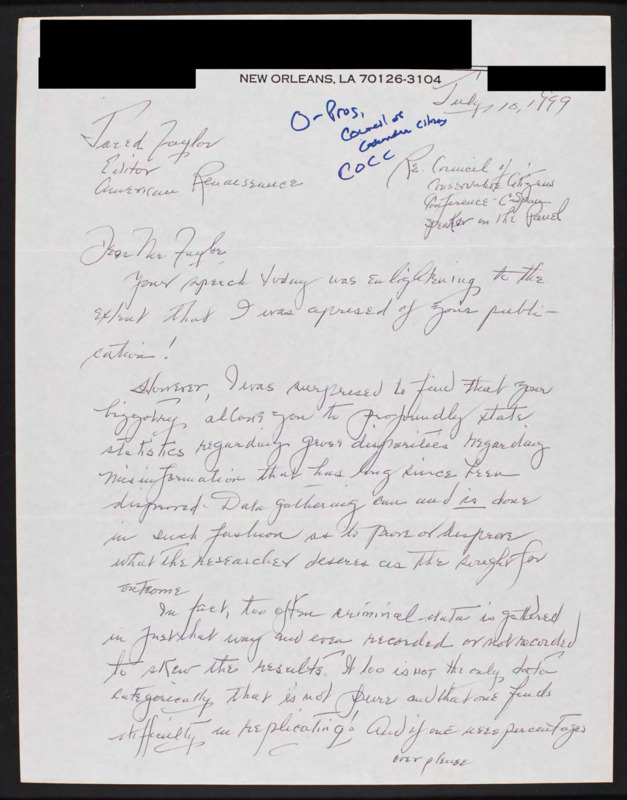 NEW ORLEANS, LA 70126-3104
July 10, 1999
O-Pros,
Council of
Citizens
COCC
Jared Taylor
Editor
American Renaessance
Re: Council of
Conservative Citizens
Conference - C-Span
Speaker on the Panel
Dear Mr. Taylor
Your speech today was enlightening to the
extent that I was apprised of your publi-
cation!
However, I was surprised to find that your
biggotry allows you to profoundly state
statistics regarding gross disparities regarding
misinformation that has long since been
disproved. Data gathering can and is done
in such fashion as to prove or disprove
what the researcher desires as the sought for
outcome
In fact, too often criminal data is gathered
in just that way and even recorded or not recorded
to skew the results. It too is not the only data
categorically that is not pure and that one finds
difficulty in replicating! And if one uses percentages
over please